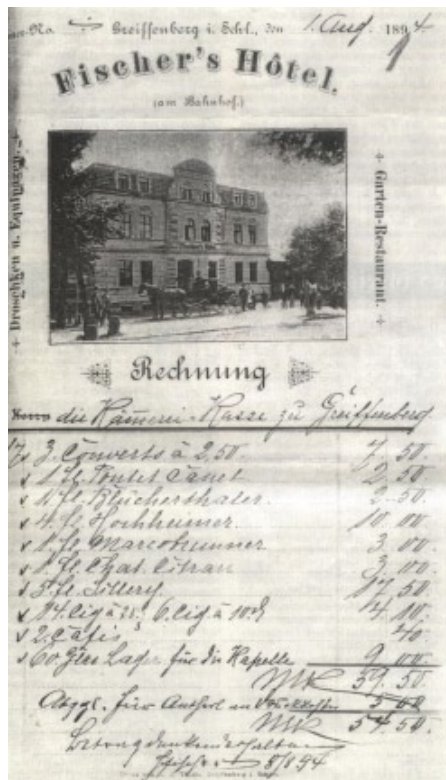 Greiffenberg i. Schl., den 1. Aug. 1894
Fischer's Hôtel.
(am Bahnhof.)
+ Droschken u. Equipagen. +
+ Garten-Restaurant. +
Rechnung
die Kämerei-Kasse zu Greiffenberg
3. Couverts à 2,50. 7. 50.
1 fl. Pontet Canet 2 50
1 fl. Blücherthaler. 2 50.
4. fl. Hochheimer. 10. 00.
1. fl. Marcobrunner 3 00.
1. fl. Chat. Citran 3 00.
5 fl. Sillery. 17 50
14. Cig à 25, 6. Cig à 10 4. 10.
2. Cafés 40.
60. Glas Lager für die Kapelle 9 00
MK 59. 50.
Abzgl. für Antheil an 5 00
MK 54. 50.
Betrag dankend erhalten
Fischer 8/8 94